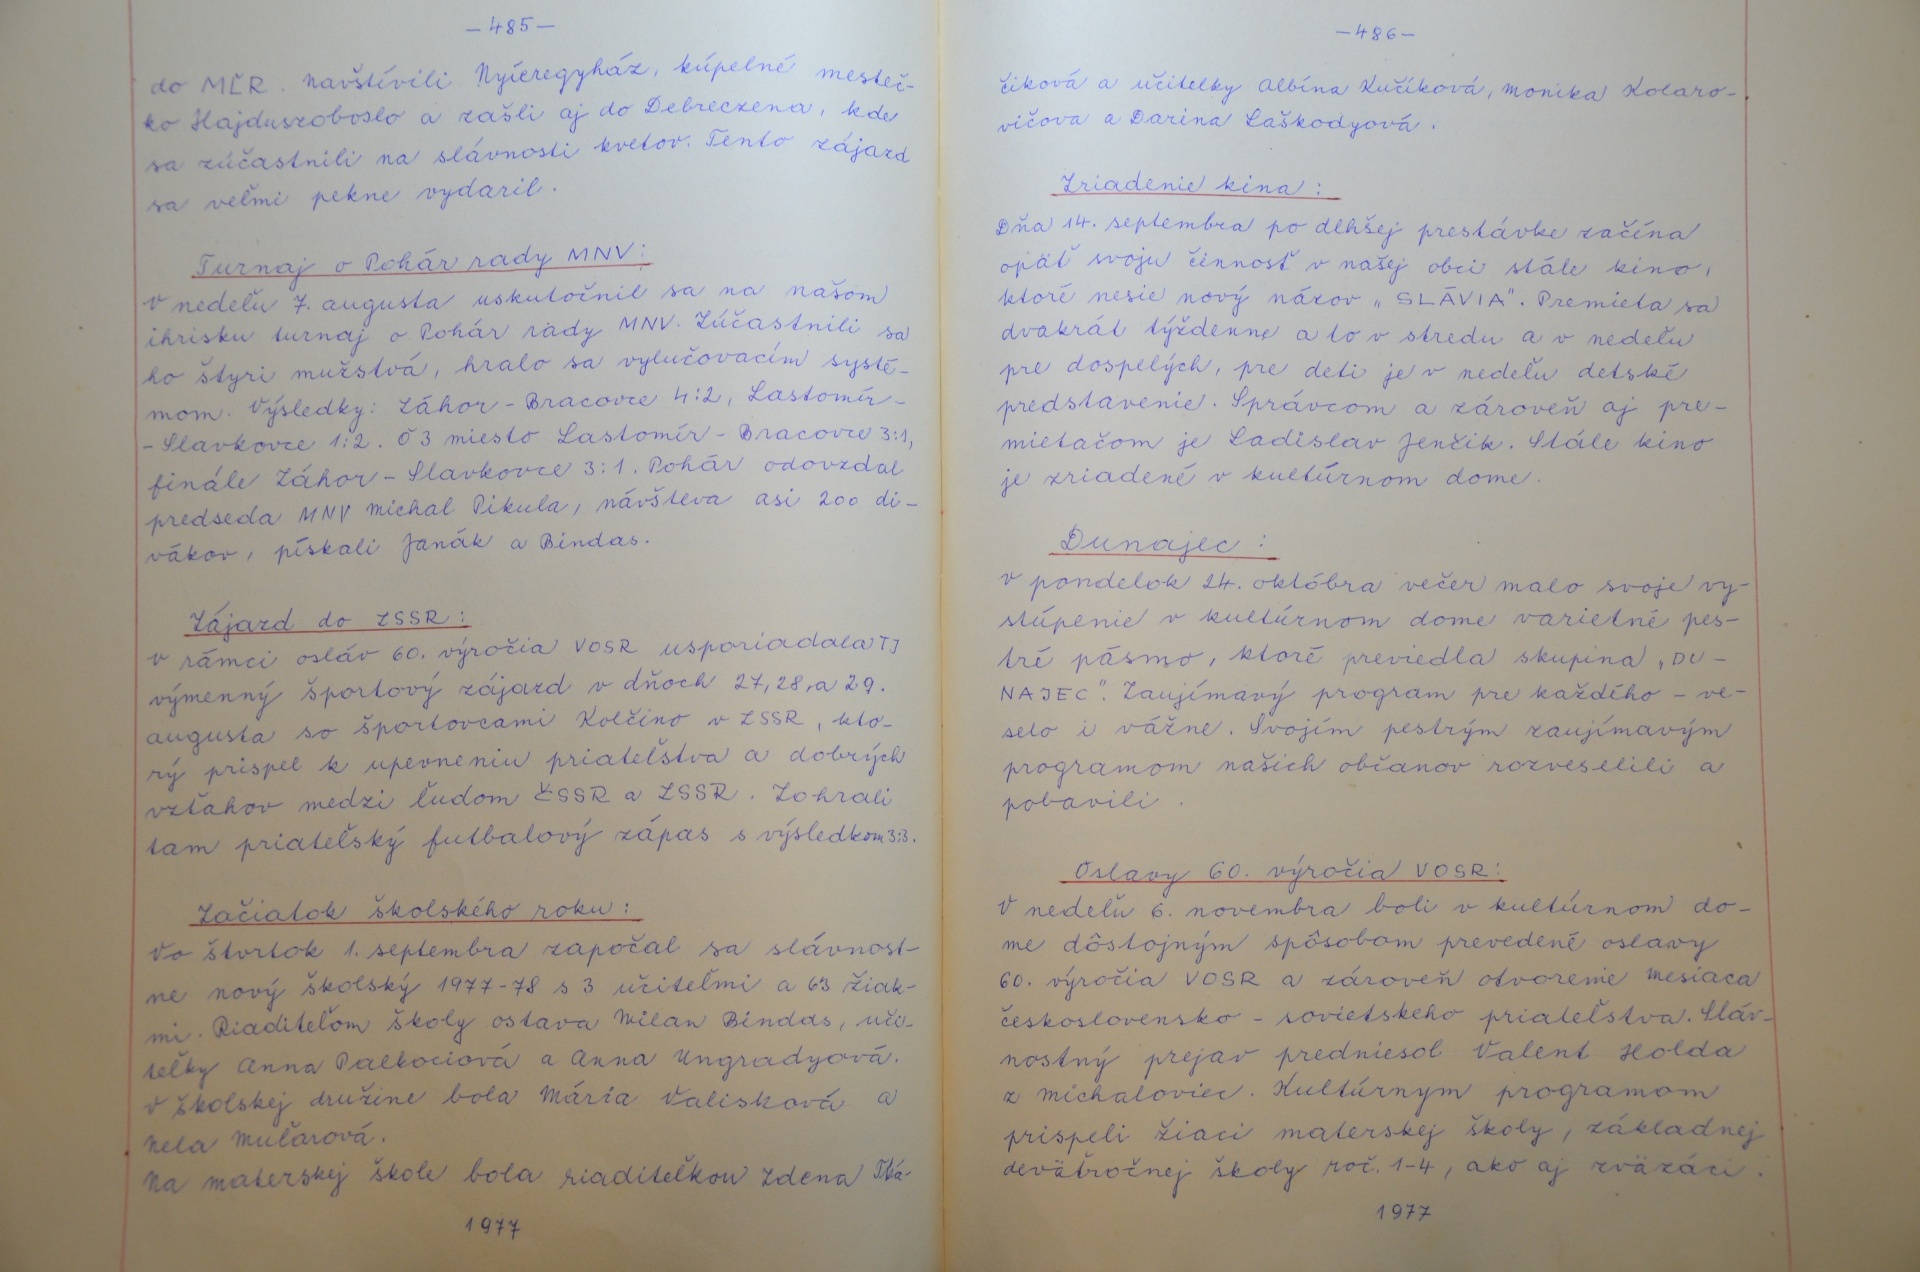 -485-
do MĽR. Navštívili Nyíeregyház, kúpelné mesteč-
ko Hajduszoboslo a zašli aj do Debreczena, kde
sa zúčastnili na slávnosti kvetov. Tento zájazd
sa veľmi pekne vydaril.
Turnaj o Pohár rady MNV:
V nedeľu 7. augusta uskutočnil sa na našom
ihrisku turnaj o Pohár rady MNV. Zúčastnili sa
ho štyri mužstvá, hralo sa vylučovacím systé-
mom. Výsledky: Záhor - Bracovce 4:2, Lastomír-
- Slavkovce 1:2. O 3 miesto Lastomír - Bracovce 3:1,
finále Záhor - Slavkovce 3:1. Pohár odovzdal
predseda MNV Michal Pikula, návšteva asi 200 di-
vákov, pískali Janák a Bindas.
Zájazd do ZSSR:
V rámci osláv 60. výročia VOSR usporiadala TJ
výmenný športový zájazd v dňoch 27, 28, a 29.
augusta so športovcami Kolčino v ZSSR, kto-
rý prispel k upevneniu priateľstva a dobrých
vzťahov medzi ľudom ČSSR a ZSSR. Zohrali
tam priateľský futbalový zápas s výsledkom 3:3.
Začiatok školského roku:
Vo štvrtok 1. septembra započal sa slávnost-
ne nový školský 1977-78 s 3 učiteľmi a 63 žiak-
mi. Riaditeľom školy ostava Milan Bindas, uči-
teľky Anna Palkociová a Anna Ungradyová.
V školskej družine bola Mária Valisková a
Nela Muľarová.
Na materskej škole bola riaditeľkou Zdena Tká-
1977
-486-
čiková a učitelky Albína Kučíková, Monika Kolaro-
vičova a Darina Laškodyová.
Zriadenie kina:
Dňa 14. septembra po dlhšej prestávke začína
opäť svoju činnosť v našej obci stále kino,
ktoré nesie nový názov „SLÁVIA". Premieta sa
dvakrát týždenne a to v stredu a v nedeľu
pre dospelých, pre deti je v nedeľu detské
predstavenie. Správcom a zároveň aj pre-
mietačom je Ladislav Jenčik. Stále kino
je zriadené v kultúrnom dome.
Dunajec:
V pondelok 24. októbra večer malo svoje vy-
stúpenie v kultúrnom dome varietné pes-
tré pásmo, ktoré previedla skupina „DU-
NAJEC". Zaujímavý program pre každého - ve-
selo i vážne. Svojím pestrým zaujímavým
programom našich občanov rozveselili a
pobavili.
Oslavy 60. výročia VOSR:
V nedeľu 6. novembra boli v kultúrnom do-
me dôstojným spôsobom prevedené oslavy
60. výročia VOSR a zároveň otvorenie Mesiaca
československo - sovietskeho priateľstva. Sláv-
nostný prejav predniesol Valent Holda
z Michaloviec. Kultúrnym programom
prispeli žiaci materskej školy, základnej
deväťročnej školy roč. 1-4, ako aj zväzáci.
1977